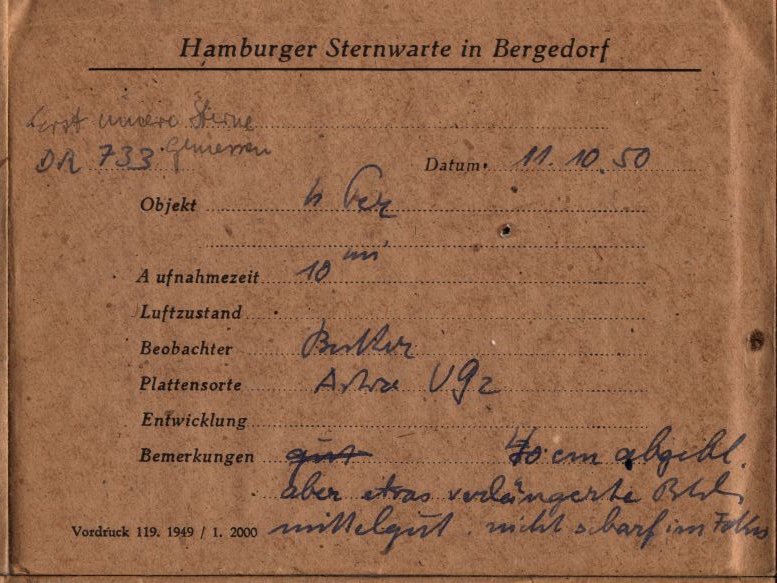 Hamburger Sternwarte in Bergedorf
Erst innere Sterne
gemessen
DR 733
Datum 11.10.50
Objekt h Per
Aufnahmezeit 10 m
Luftzustand
Beobachter
Plattensorte Astro VG2
Entwicklung
Bemerkungen gut 40 cm abgebl.
aber etwas verlängerte Bild
mittelgut nicht scharf im Fokus
Vordruck 119. 1949 / 1. 2000